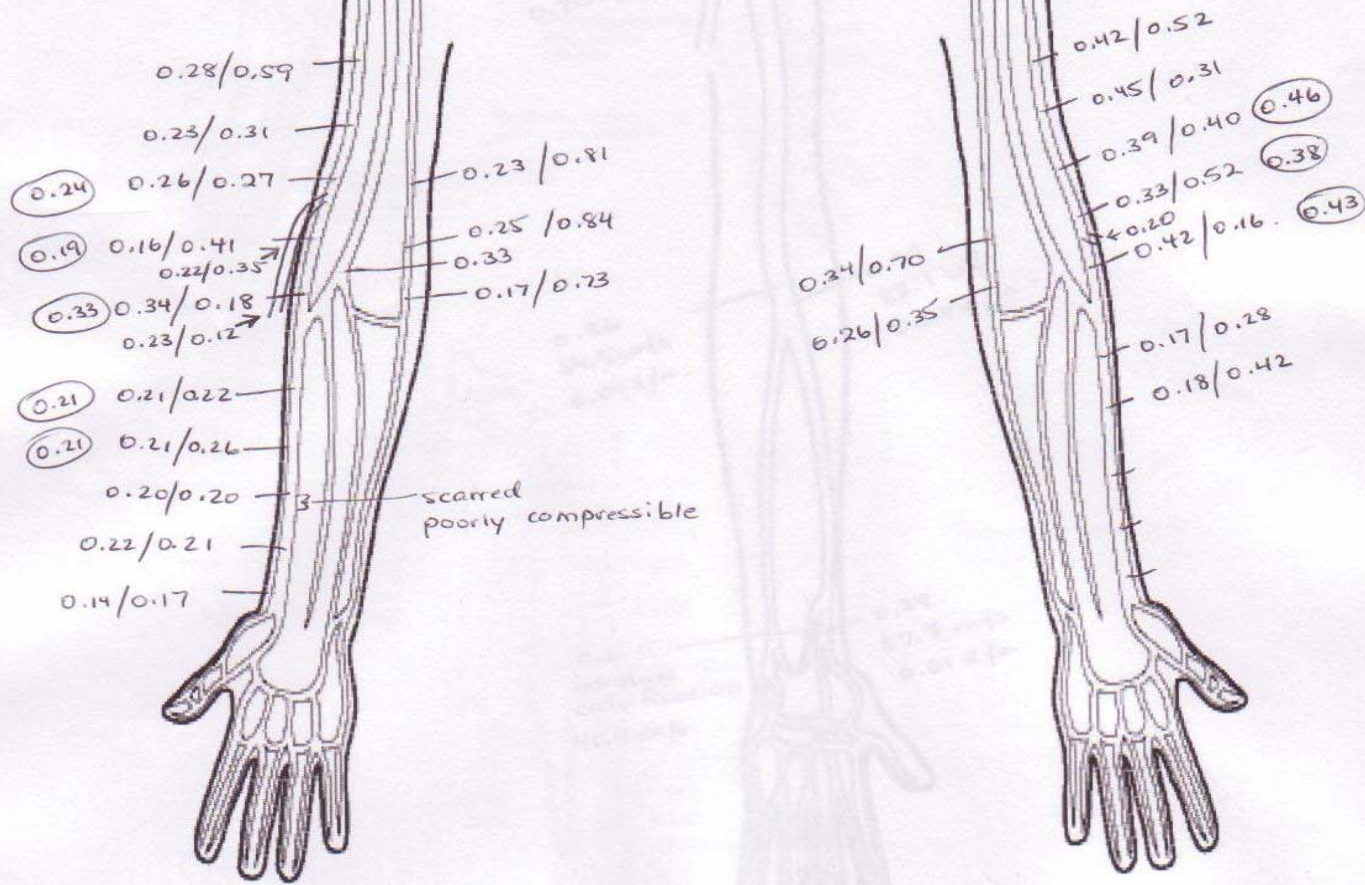 0.28/0.59
0.23/0.31
0.24 0.26/0.27
0.19 0.16/0.41
0.22/0.35
0.33 0.34/0.18
0.23/0.12
0.21 0.21/0.22
0.21 0.21/0.26
0.20/0.20
0.22/0.21
0.14/0.17
0.23/0.81
0.25/0.84
0.33
0.17/0.73
scarred
poorly compressible
0.34/0.70
0.26/0.35
0.42/0.52
0.45/0.31
0.39/0.40 0.46
0.33/0.52 0.38
0.20
0.42/0.16. 0.43
0.17/0.28
0.18/0.42